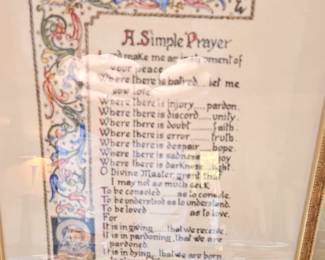 A Simple Prayer
Lord make me an instrument of
your peace
Where there is hatred... let me
sow love
Where there is injury.... pardon.
Where there is discord.... unity.
Where there is doubt.... faith.
Where there is error.... truth.
Where there is despair... hope.
Where there is sadness... joy
Where there is darkness... light
O Divine Master grant that
I may not so much seek
To be consoled.... as to console.
To be understood as to understand.
To be loved.......... as to love.
For
It is in giving.... that we receive.
It is in pardoning, that we are
pardoned.
It is in dying, that we are born